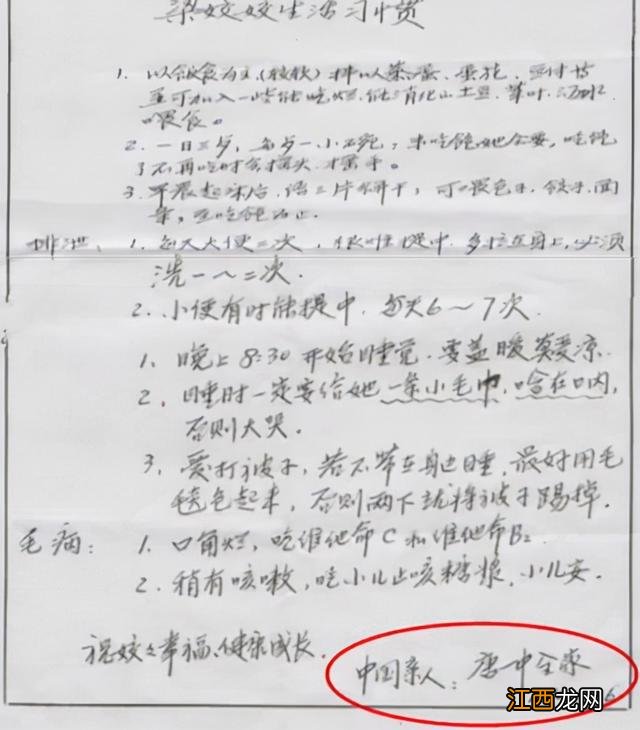 梁姣姣生活习惯
1. 以饭食为主(较软)拌以菜汤、蛋花、
豆可加入一些能吃烂、能消化山土豆、菜叶
喂食。
2. 一日三歺，每歺一小碗，未吃饱她会要，吃饱
了不再吃时会摇头、摆手。
3. 早晨起床后，语三片饼干，可喂包子、饺子、面
条，至吃饱为止。
排泄、1. 每天大便二次，很难提中、多拉在身上，必须
洗一~二次.
2. 小便有时能提中，每天6～7次.
1. 晚上8:30开始睡觉. 要盖暖莫受凉.
2. 睡时一定要给她一条小毛巾, 啥在口内,
否则大哭.
3. 爱打被子, 若不带在身边睡, 最好用毛
毯包起来, 否则两下就将被子踢掉.
毛病: 1. 口角烂, 吃维他命C和维他命B2
2. 稍有咳嗽, 吃小儿止咳糖浆, 小儿安.
祝姣姣幸福、健康成长.
中国亲人: 唐一中全家
江西龙网